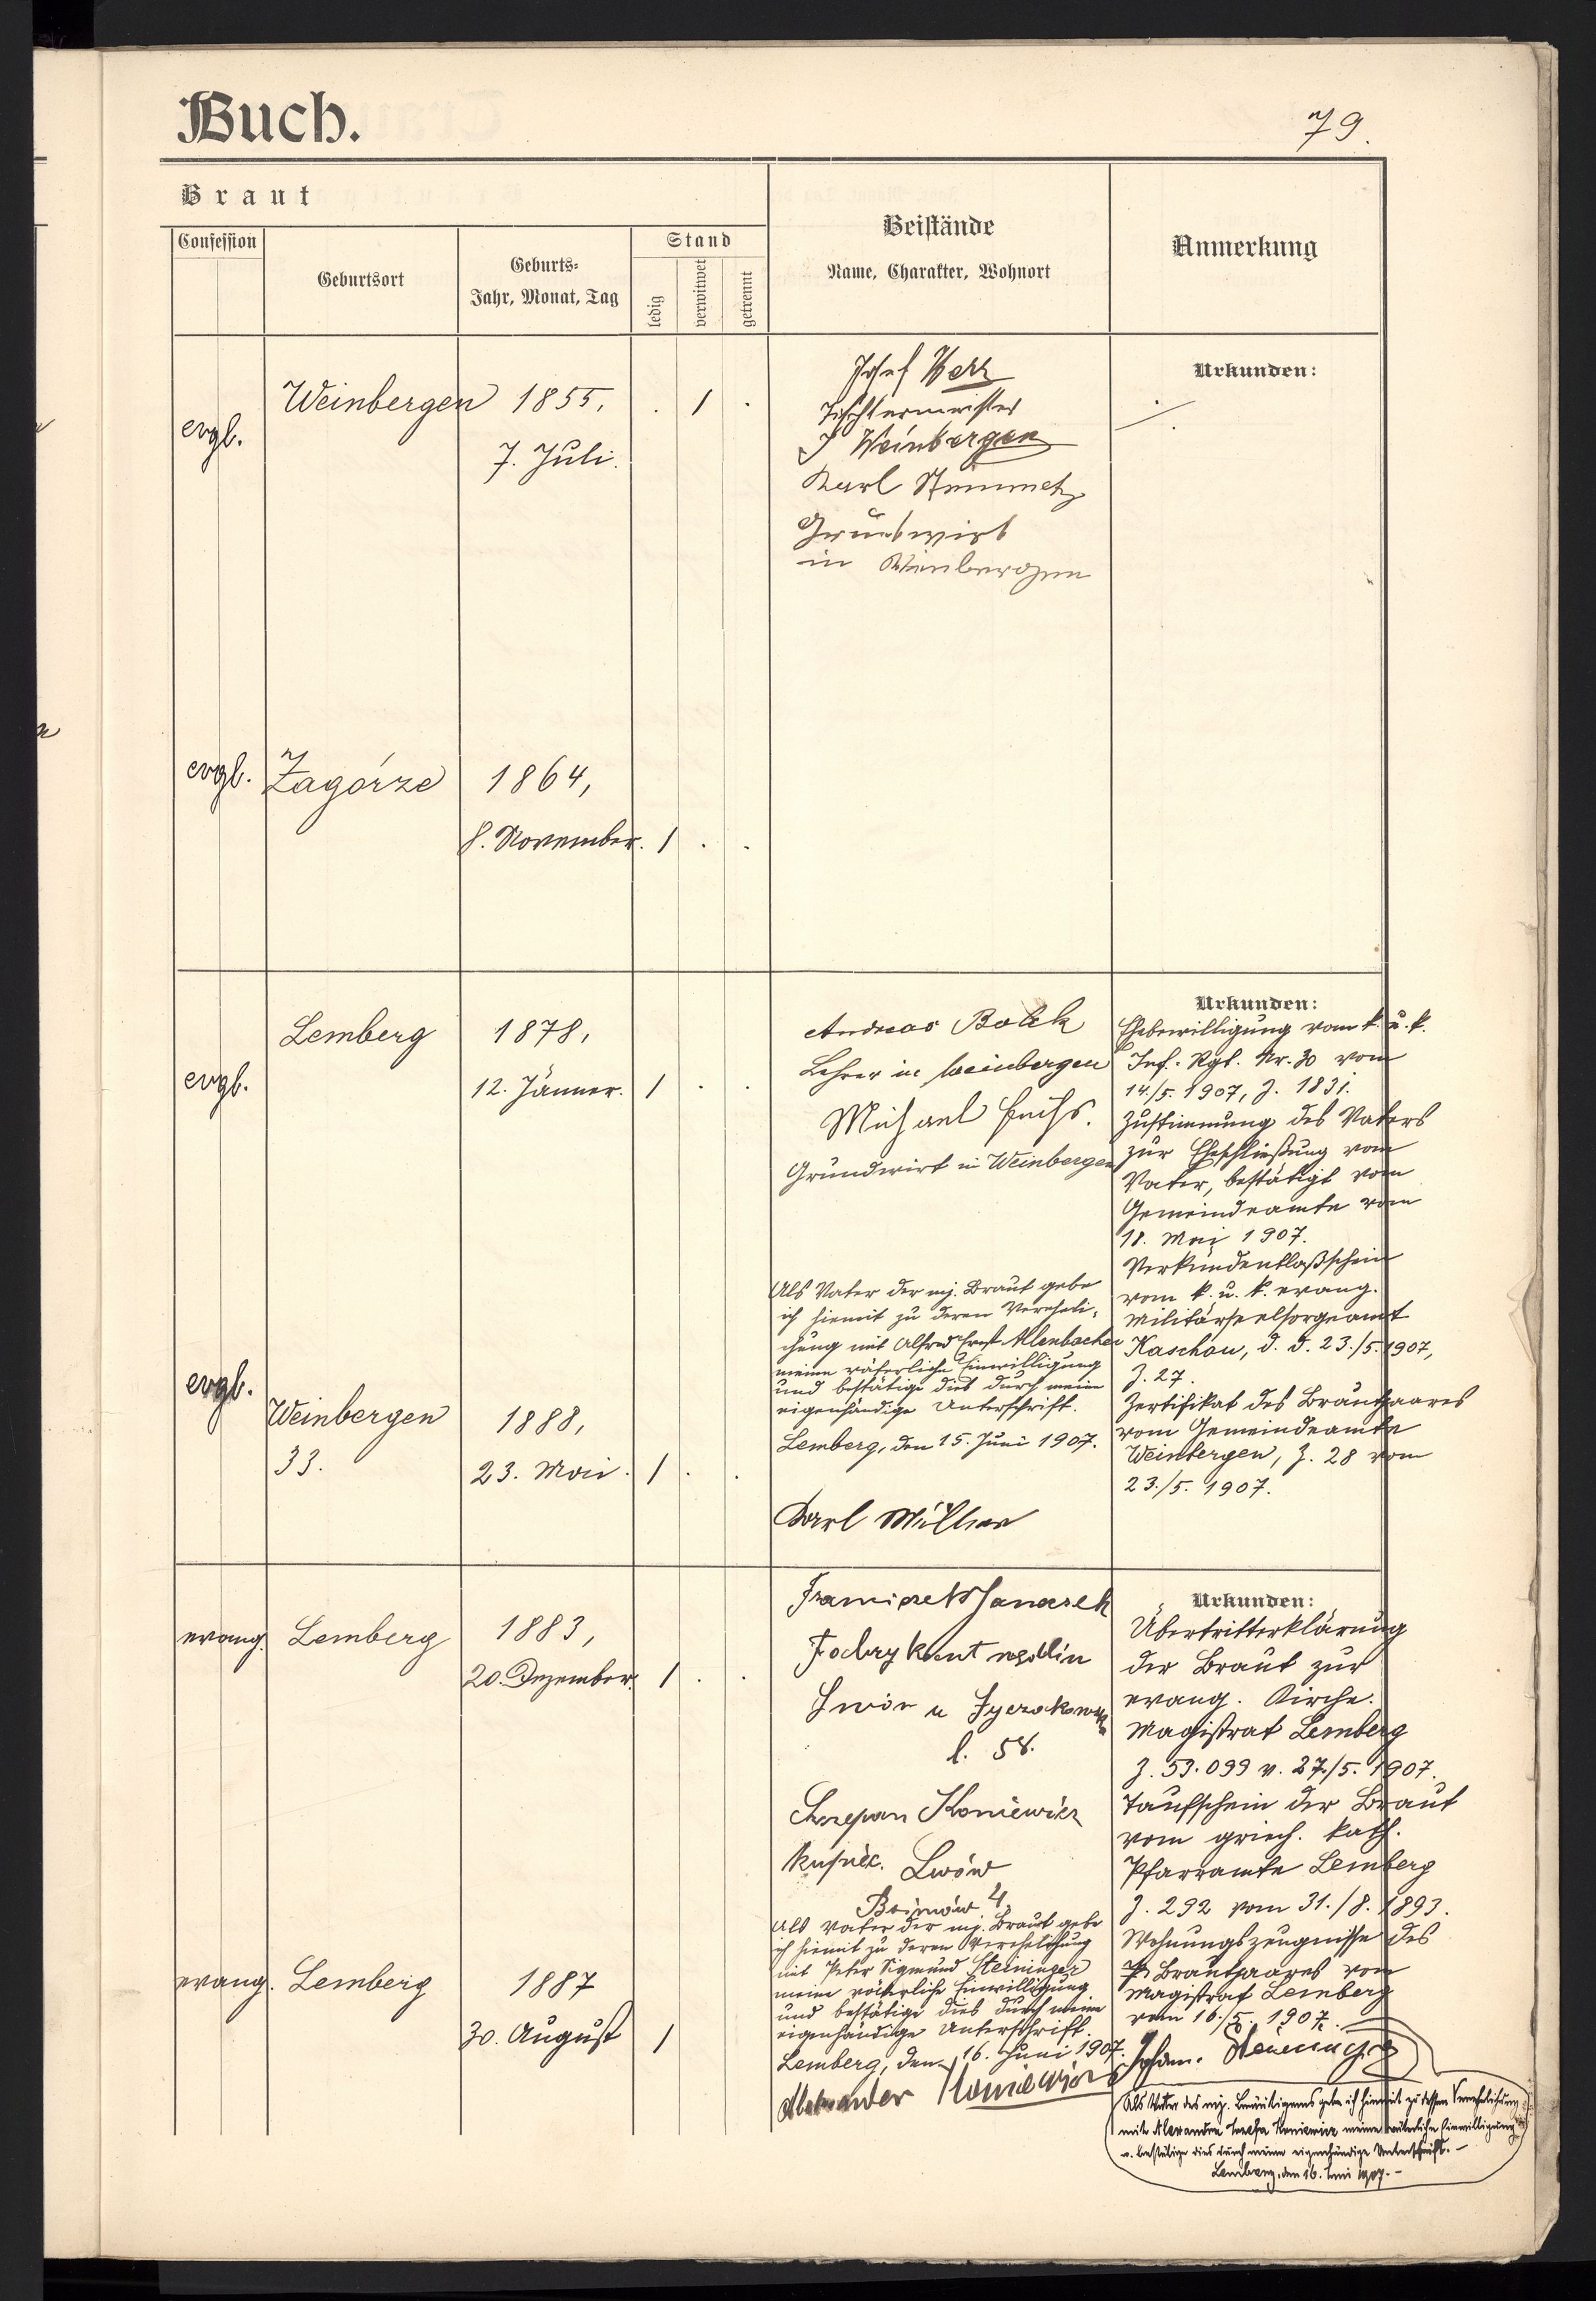 Buch.
79.
Braut
Confession
Geburtsort
Geburts-
Jahr, Monat, Tag
Stand
ledig
verwitwet
getrennt
Beistände
Name, Charakter, Wohnort
Anmerkung
evgl.
Weinbergen
1855,
7. Juli.
. 1 .
Josef Herz
Tischlermeister
Weinbergen
Karl Steinmetz
Grundwirt
in Weinbergen
Urkunden:
evgl.
Zagórze
1864,
8. November.
1 . .
evgl.
Lemberg
1878,
12. Jänner.
1 . .
Andreas Bolek
Lehrer in Weinbergen
Michael Fuchs.
Grundwirt in Weinbergen
Urkunden:
Ehebewilligung vom k. u. k.
Inf. Rgt. Nr. 30 vom
14./5. 1907, Z. 1831.
Zustimmung des Vaters
zur Eheschließung vom
Vater, bestätigt vom
Gemeindeamte vom
18. Mai 1907.
Verkündentlaßschein
vom k. u. k. evang.
Militärseelsorgeamt
Kaschau, d. d. 23./5. 1907,
Z. 27.
Zertifikat des Brautpaares
vom Gemeindeamte
Weinbergen, Z. 28 vom
23./5. 1907.
evgl.
Weinbergen
33.
1888,
23. Mai.
1 . .
Als Vater der mj. Braut gebe
ich hiemit zu deren Vereheli-
chung mit Alfred Ernst Allenbacher
meine väterliche Einwilligung
und bestätige dies durch meine
eigenhändige Unterschrift.
Lemberg, den 15. Juni 1907.
Karl Müller
evang.
Lemberg
1883,
20. Dezember.
1 . .
Franciszek Janaszek
Lwów u
l. 58.
Szczepan Koniewicz
Lwów
4.
Urkunden:
Übertritterklärung
der Braut zur
evang. Kirche.
Magistrat Lemberg
Z. 53.099 v. 27./5. 1907.
Taufschein der Braut
vom griech. kath.
Pfarramte Lemberg
Z. 292 vom 31./8. 1893.
Wohnungszeugnisse des
Brautpaares vom
Magistrat Lemberg
vom 16./5. 1907.
evang.
Lemberg
1887
30. August
1
Als Vater der mj. Braut gebe
ich hiemit zu deren Verehelichung
mit Peter Sigmund Steininger
meine väterliche Einwilligung
und bestätige dies durch meine
eigenhändige Unterschrift.
Lemberg, den 16. Juni 1907.
Alexander Koniewicz
Johan. Steininger
Als Vater des mj. Bräutigams gebe ich hiemit zu dessen Verehelichung
mit Alexandra Josefa Koniewicz meine väterliche Einwilligung
u. bestätige dies durch meine eigenhändige Unterschrift. -
Lemberg, den 16. Juni 1907. -